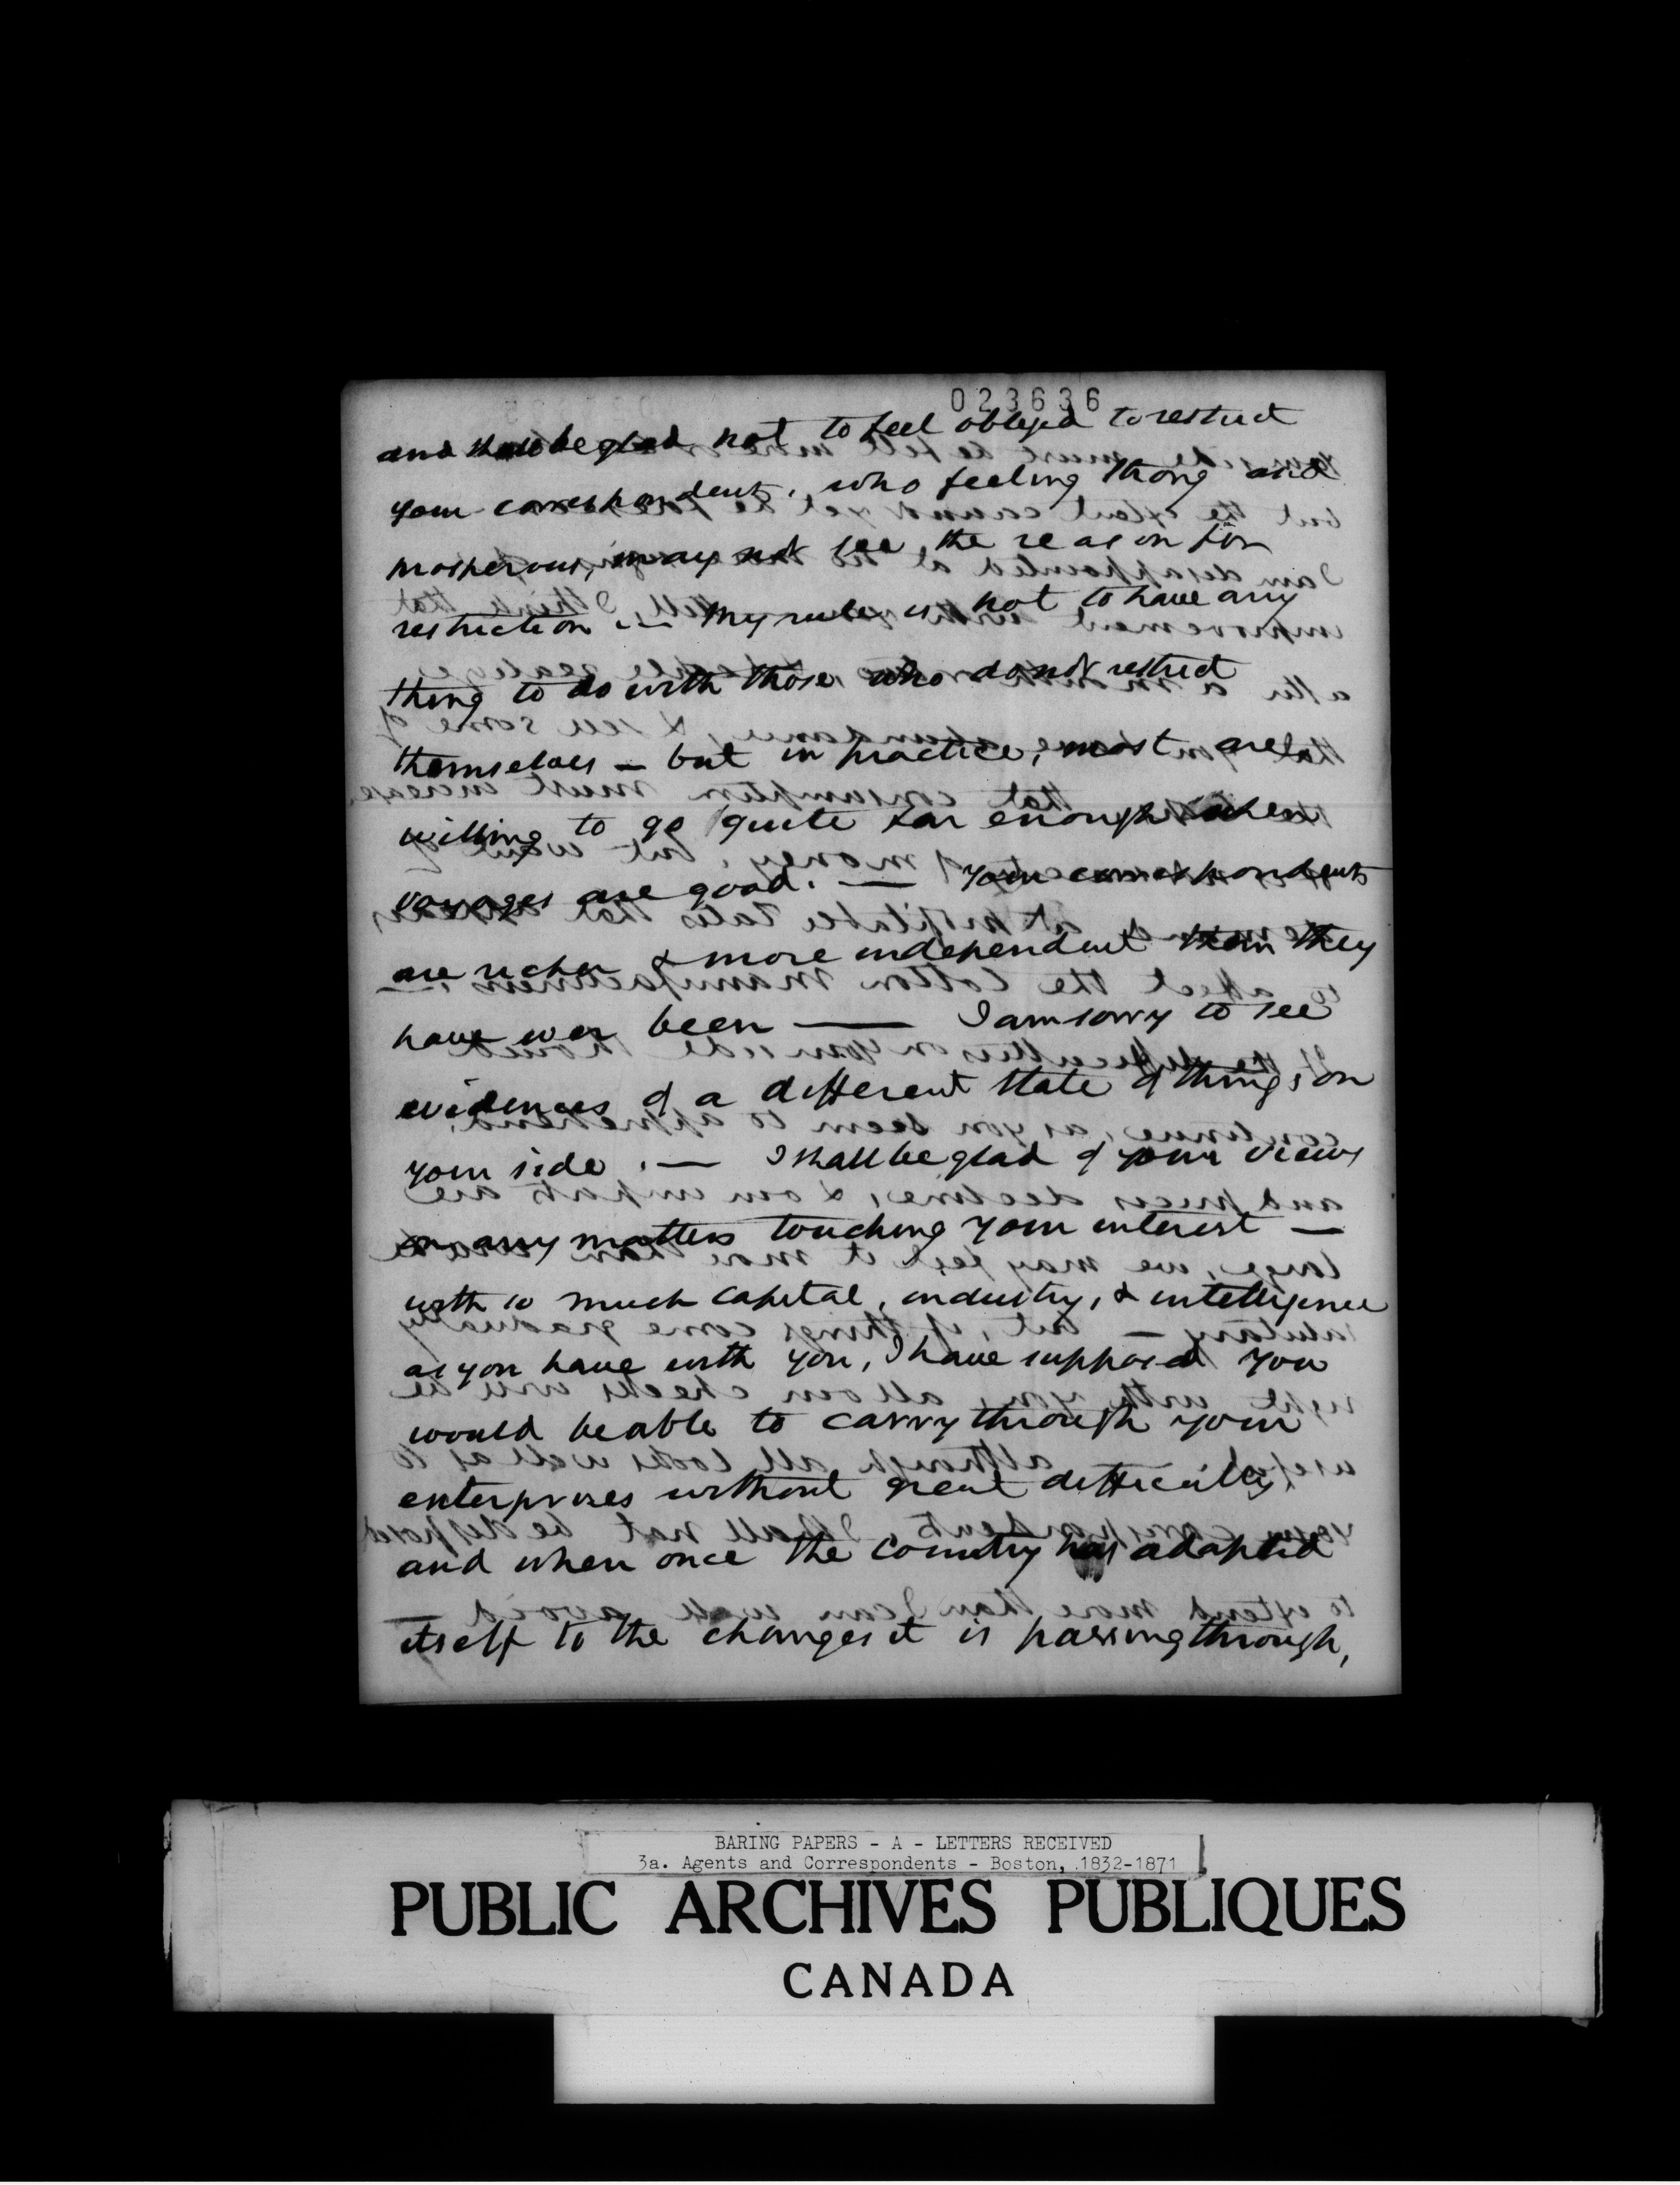 023636
and shall be glad not to feel obliged to restrict
your correspondents, who feeling strong and
prosperous, may not see the reason for
restriction .— My rule is not to have any
thing to do with those who do not restrict
themselves — but in practice, most are
willing to go quite far enough when
voyages are good. — Your correspondents
are richer & more independent than they
have ever been — I am sorry to see
evidences of a different state of things on
your side .— I shall be glad of your views
on any matters touching your interest —
with so much capital, industry, & intelligence
as you have with you, I have supposed you
would be able to carry through your
enterprises without great difficulty,
and when once the country has adapted
itself to the changes it is passing through,
BARING PAPERS - A - LETTERS RECEIVED
3a. Agents and Correspondents - Boston, 1832-1871
PUBLIC ARCHIVES PUBLIQUES
CANADA